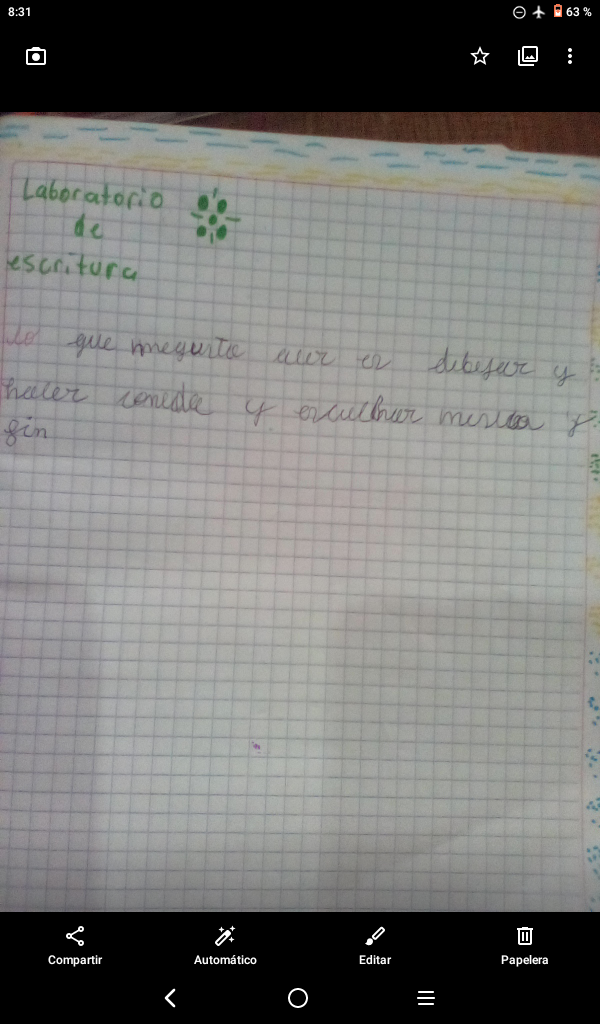 8:31
63 %
Laboratorio
de
escritura
lo que megusta acer es dibujar y
hacer comida y escuchar musica y
fin
Compartir
Automático
Editar
Papelera